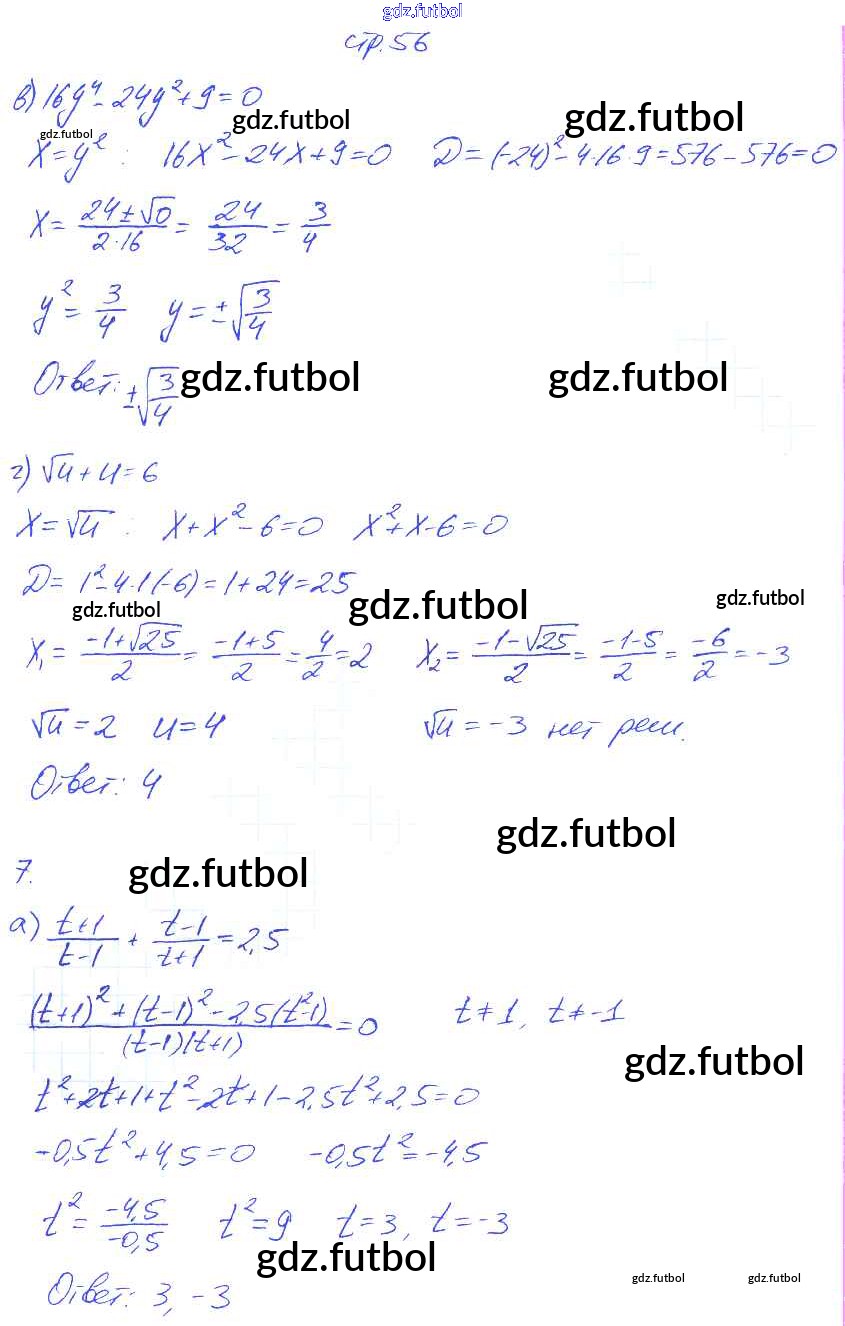 gdz.futbol
стр. 56
в) 16y⁴ - 24y² + 9 = 0
gdz.futbol gdz.futbol gdz.futbol
x = y² : 16x² - 24x + 9 = 0 D = (-24)² - 4·16·9 = 576 - 576 = 0
x = (24 ± √0)/(2·16) = 24/32 = 3/4
y² = 3/4 y = ±√(3/4)
Ответ: ±√(3/4) gdz.futbol gdz.futbol
г) √u + u = 6
x = √u : x + x² - 6 = 0 x² + x - 6 = 0
D = 1² - 4·1(-6) = 1 + 24 = 25
gdz.futbol gdz.futbol gdz.futbol
x₁ = (-1 + √25)/2 = (-1 + 5)/2 = 4/2 = 2 x₂ = (-1 - √25)/2 = (-1 - 5)/2 = -6/2 = -3
√u = 2 u = 4 √u = -3 нет реш.
Ответ: 4
gdz.futbol
7. gdz.futbol
а) (t+1)/(t-1) + (t-1)/(t+1) = 2,5
((t+1)² + (t-1)² - 2,5(t²-1))/((t-1)(t+1)) = 0 t ≠ 1, t ≠ -1
gdz.futbol
t² + 2t + 1 + t² - 2t + 1 - 2,5t² + 2,5 = 0
-0,5t² + 4,5 = 0 -0,5t² = -4,5
t² = -4,5/-0,5 t² = 9 t = 3, t = -3
gdz.futbol gdz.futbol gdz.futbol
Ответ: 3, -3